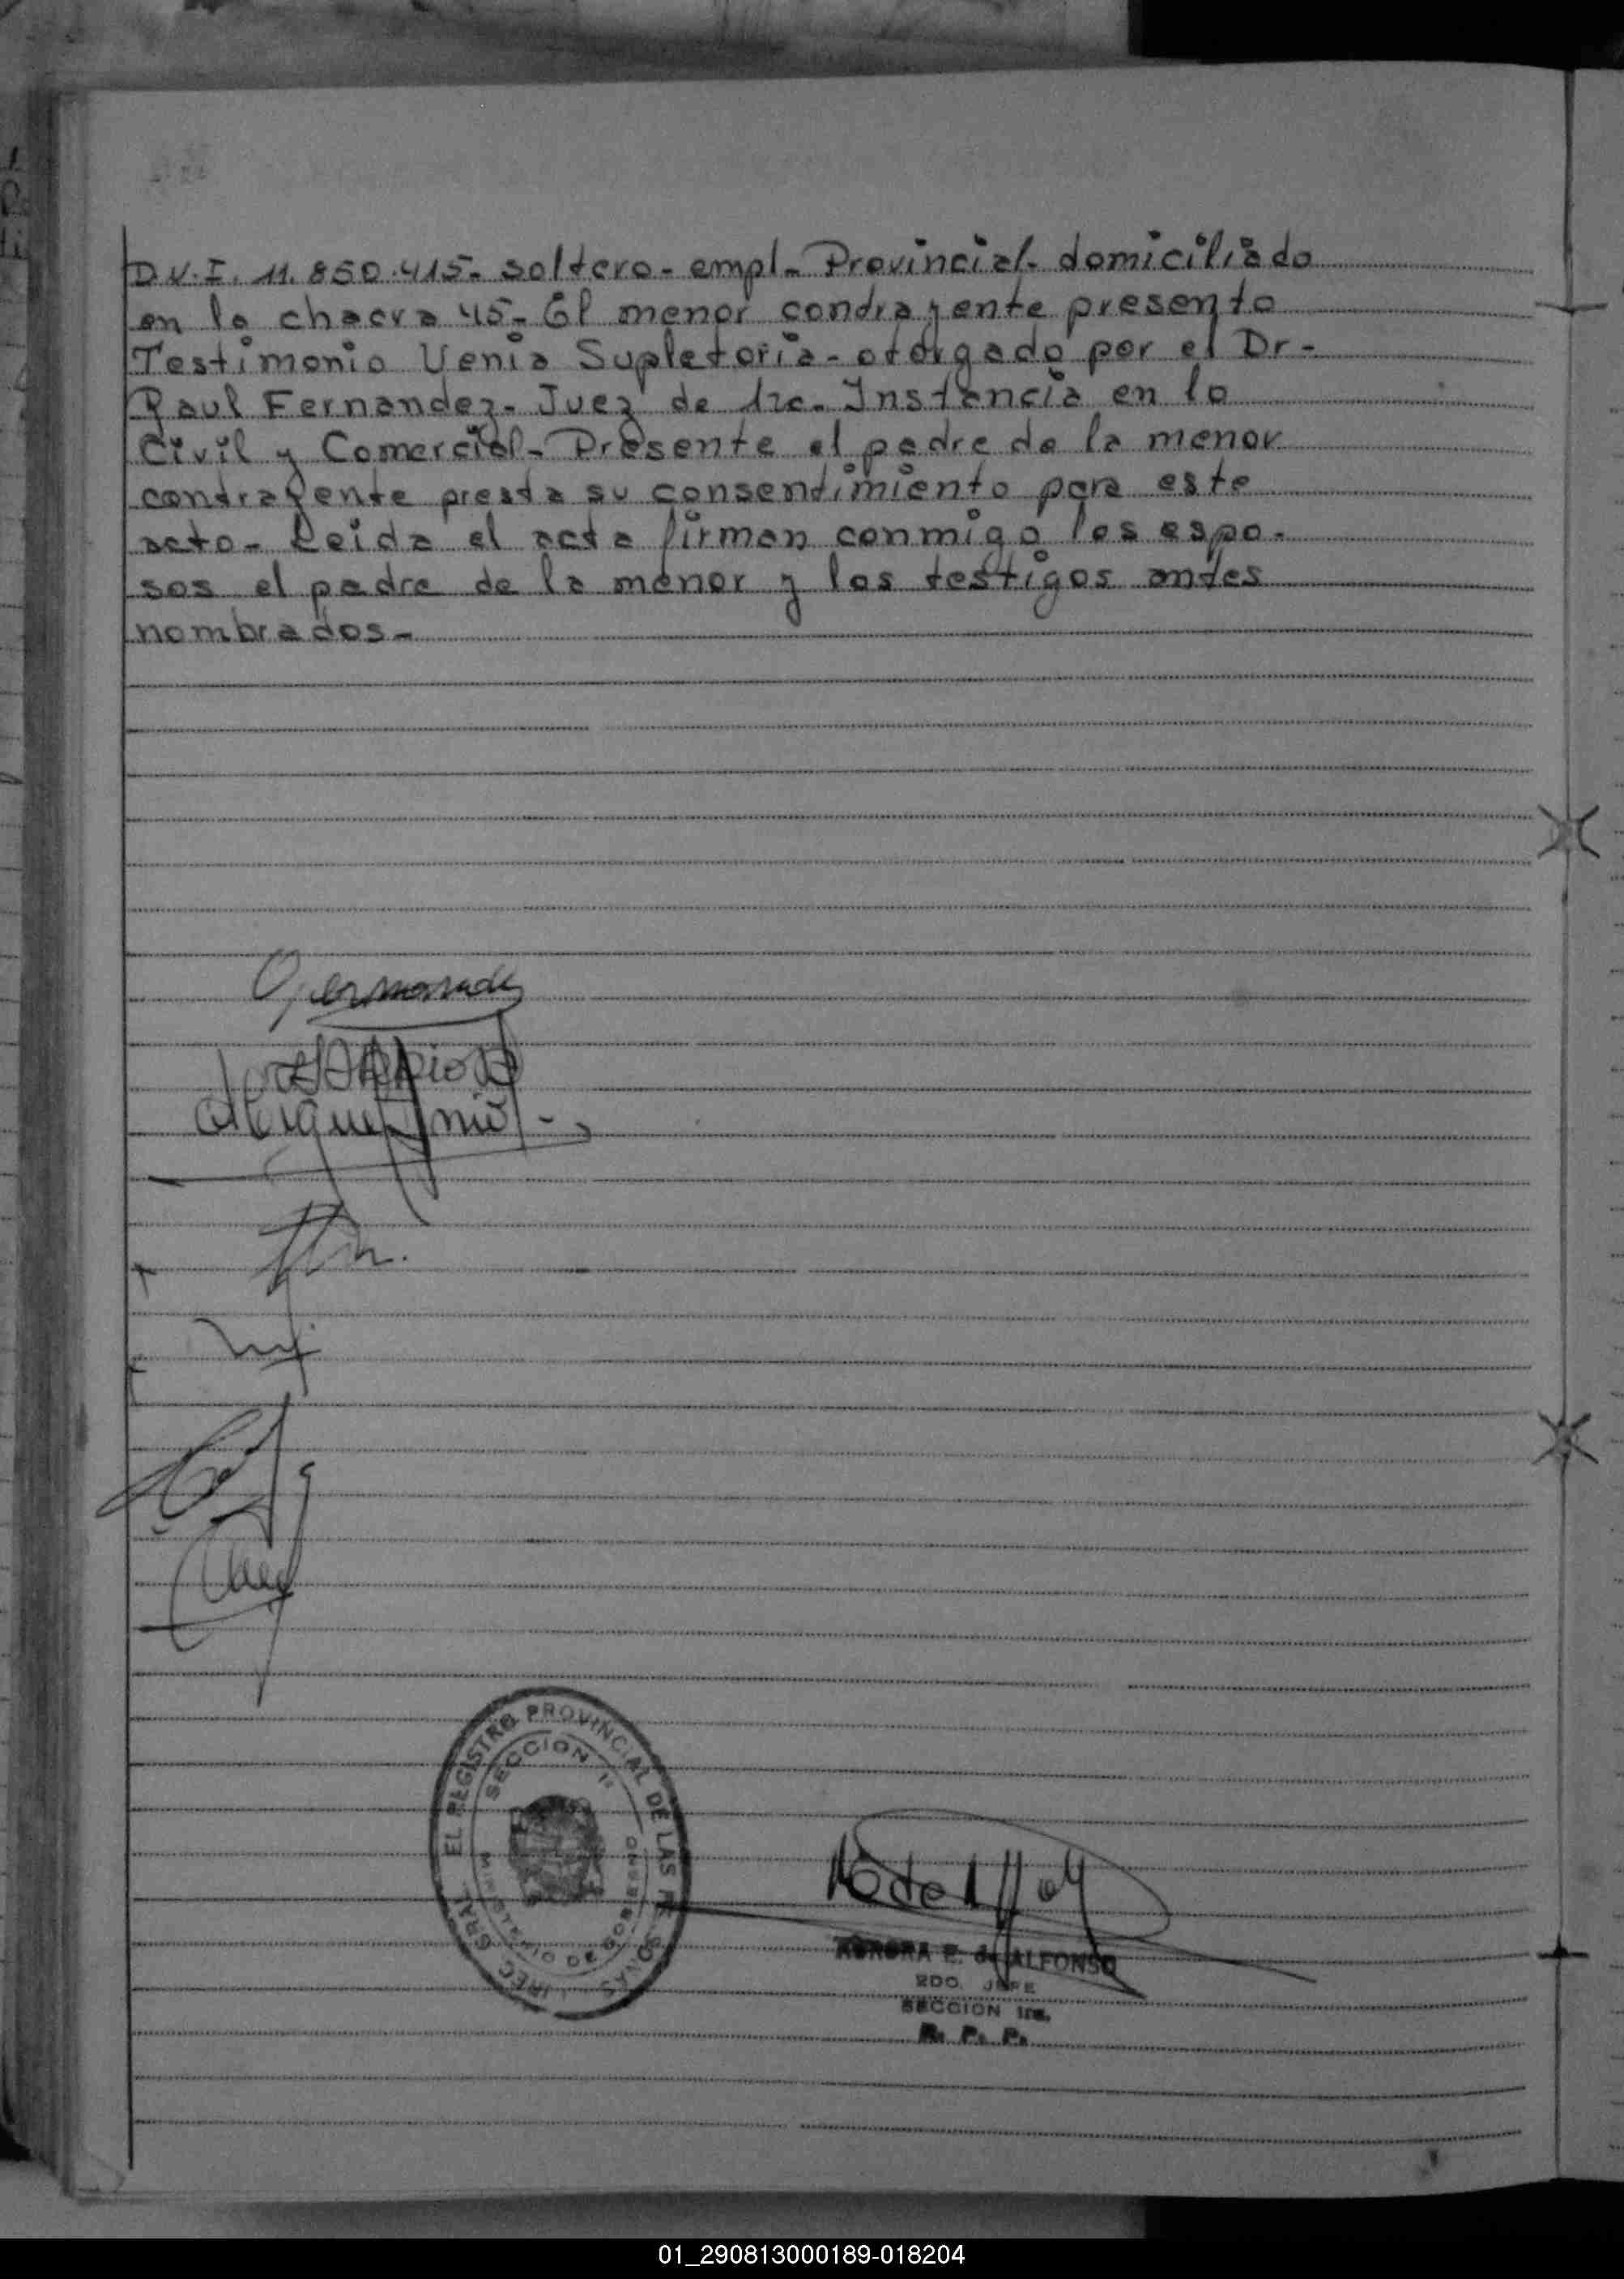 D.N.I. 11.850.415- soltero- empl- Provincial- domiciliado
en la chacra 45- El menor contrayente presento
Testimonio Venia Supletoria- otorgado por el Dr-
Raul Fernandez- Juez de 1ra- Instancia en lo
Civil y Comercial- Presente el padre de la menor
contrayente presta su consentimiento para este
acto- Leida el acta firman conmigo los espo-
sos el padre de la menor y los testigos antes
nombrados-
EL REGISTRO PROVINCIAL DE LAS
SECCION 1ª
AURORA E. de ALFONSO
2DO. JEFE
SECCION 1ra.
R. P. P.
01_290813000189-018204